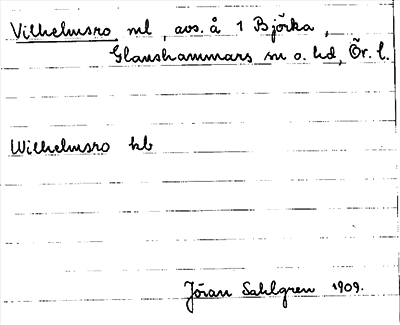 Vilhelmsro ml, avs. å 1 Björka,
Glanshammars sn o. hd, Ör. l.
Wilhelmsro kb
Jöran Sahlgren 1909.